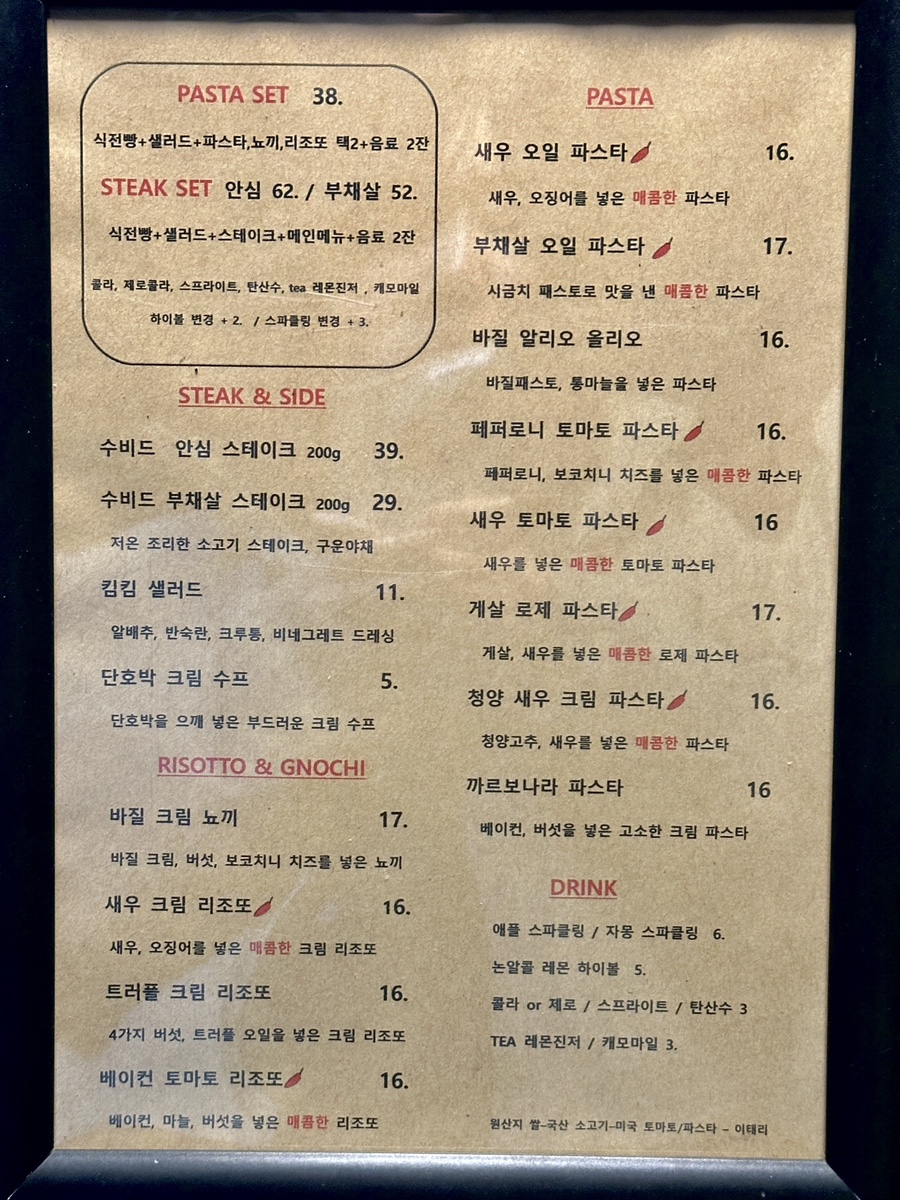 PASTA SET 38.
식전빵+샐러드+파스타,뇨끼,리조또 택2+음료 2잔
STEAK SET 안심 62. / 부채살 52.
식전빵+샐러드+스테이크+메인메뉴+음료 2잔
콜라, 제로콜라, 스프라이트, 탄산수, tea 레몬진저 , 캐모마일
하이볼 변경 + 2. / 스파클링 변경 + 3.
STEAK & SIDE
수비드 안심 스테이크 200g 39.
수비드 부채살 스테이크 200g 29.
저온 조리한 소고기 스테이크, 구운야채
킴킴 샐러드 11.
알배추, 반숙란, 크루통, 비네그레트 드레싱
단호박 크림 수프 5.
단호박을 으깨 넣은 부드러운 크림 수프
RISOTTO & GNOCHI
바질 크림 뇨끼 17.
바질 크림, 버섯, 보코치니 치즈를 넣은 뇨끼
새우 크림 리조또 16.
새우, 오징어를 넣은 매콤한 크림 리조또
트러플 크림 리조또 16.
4가지 버섯, 트러플 오일을 넣은 크림 리조또
베이컨 토마토 리조또 16.
베이컨, 마늘, 버섯을 넣은 매콤한 리조또
PASTA
새우 오일 파스타 16.
새우, 오징어를 넣은 매콤한 파스타
부채살 오일 파스타 17.
시금치 패스토로 맛을 낸 매콤한 파스타
바질 알리오 올리오 16.
바질패스토, 통마늘을 넣은 파스타
페퍼로니 토마토 파스타 16.
페퍼로니, 보코치니 치즈를 넣은 매콤한 파스타
새우 토마토 파스타 16
새우를 넣은 매콤한 토마토 파스타
게살 로제 파스타 17.
게살, 새우를 넣은 매콤한 로제 파스타
청양 새우 크림 파스타 16.
청양고추, 새우를 넣은 매콤한 파스타
까르보나라 파스타 16
베이컨, 버섯을 넣은 고소한 크림 파스타
DRINK
애플 스파클링 / 자몽 스파클링 6.
논알콜 레몬 하이볼 5.
콜라 or 제로 / 스프라이트 / 탄산수 3
TEA 레몬진저 / 캐모마일 3.
원산지 쌀-국산 소고기-미국 토마토/파스타 - 이태리